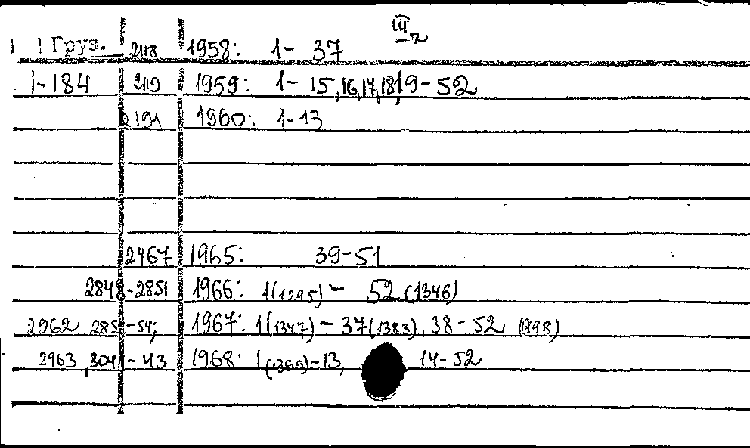 III 2
1 Груз. 2118 1958: 1- 37
1-184 2119 1959: 1- 15,16,17,18,19-52
2191 1960: 1-13
2467 1965: 39-51
2848-2851 1966: 1(1295)- 52(1346)
2962, 285 -54; 1967: 1(1347)-37(1383), 38-52 (1398)
2963, 3041-43 1968: 1(1399)-13, 14-52